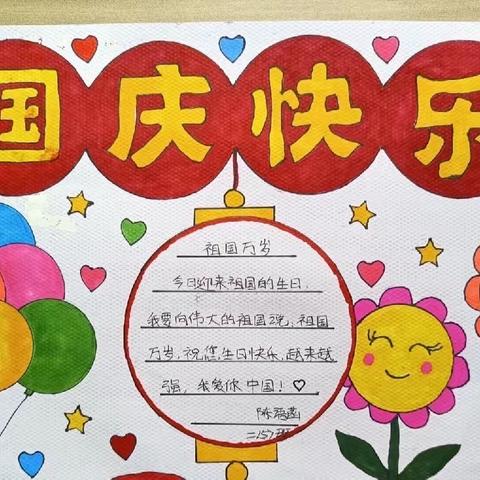 国庆快乐
祖国万岁
今日迎来祖国的生日,
我要向伟大的祖国说:祖国
万岁,祝您生日快乐,越来越
强,我爱你中国!♡